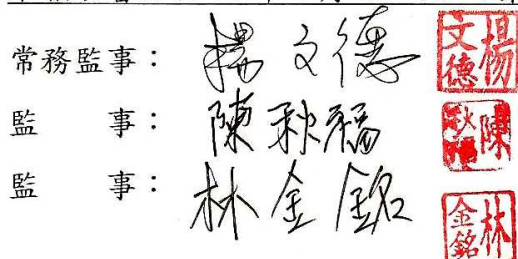 常務監事： 楊文德 楊文德
監 事： 陳秋福 陳秋福
監 事： 林金銘 林金銘